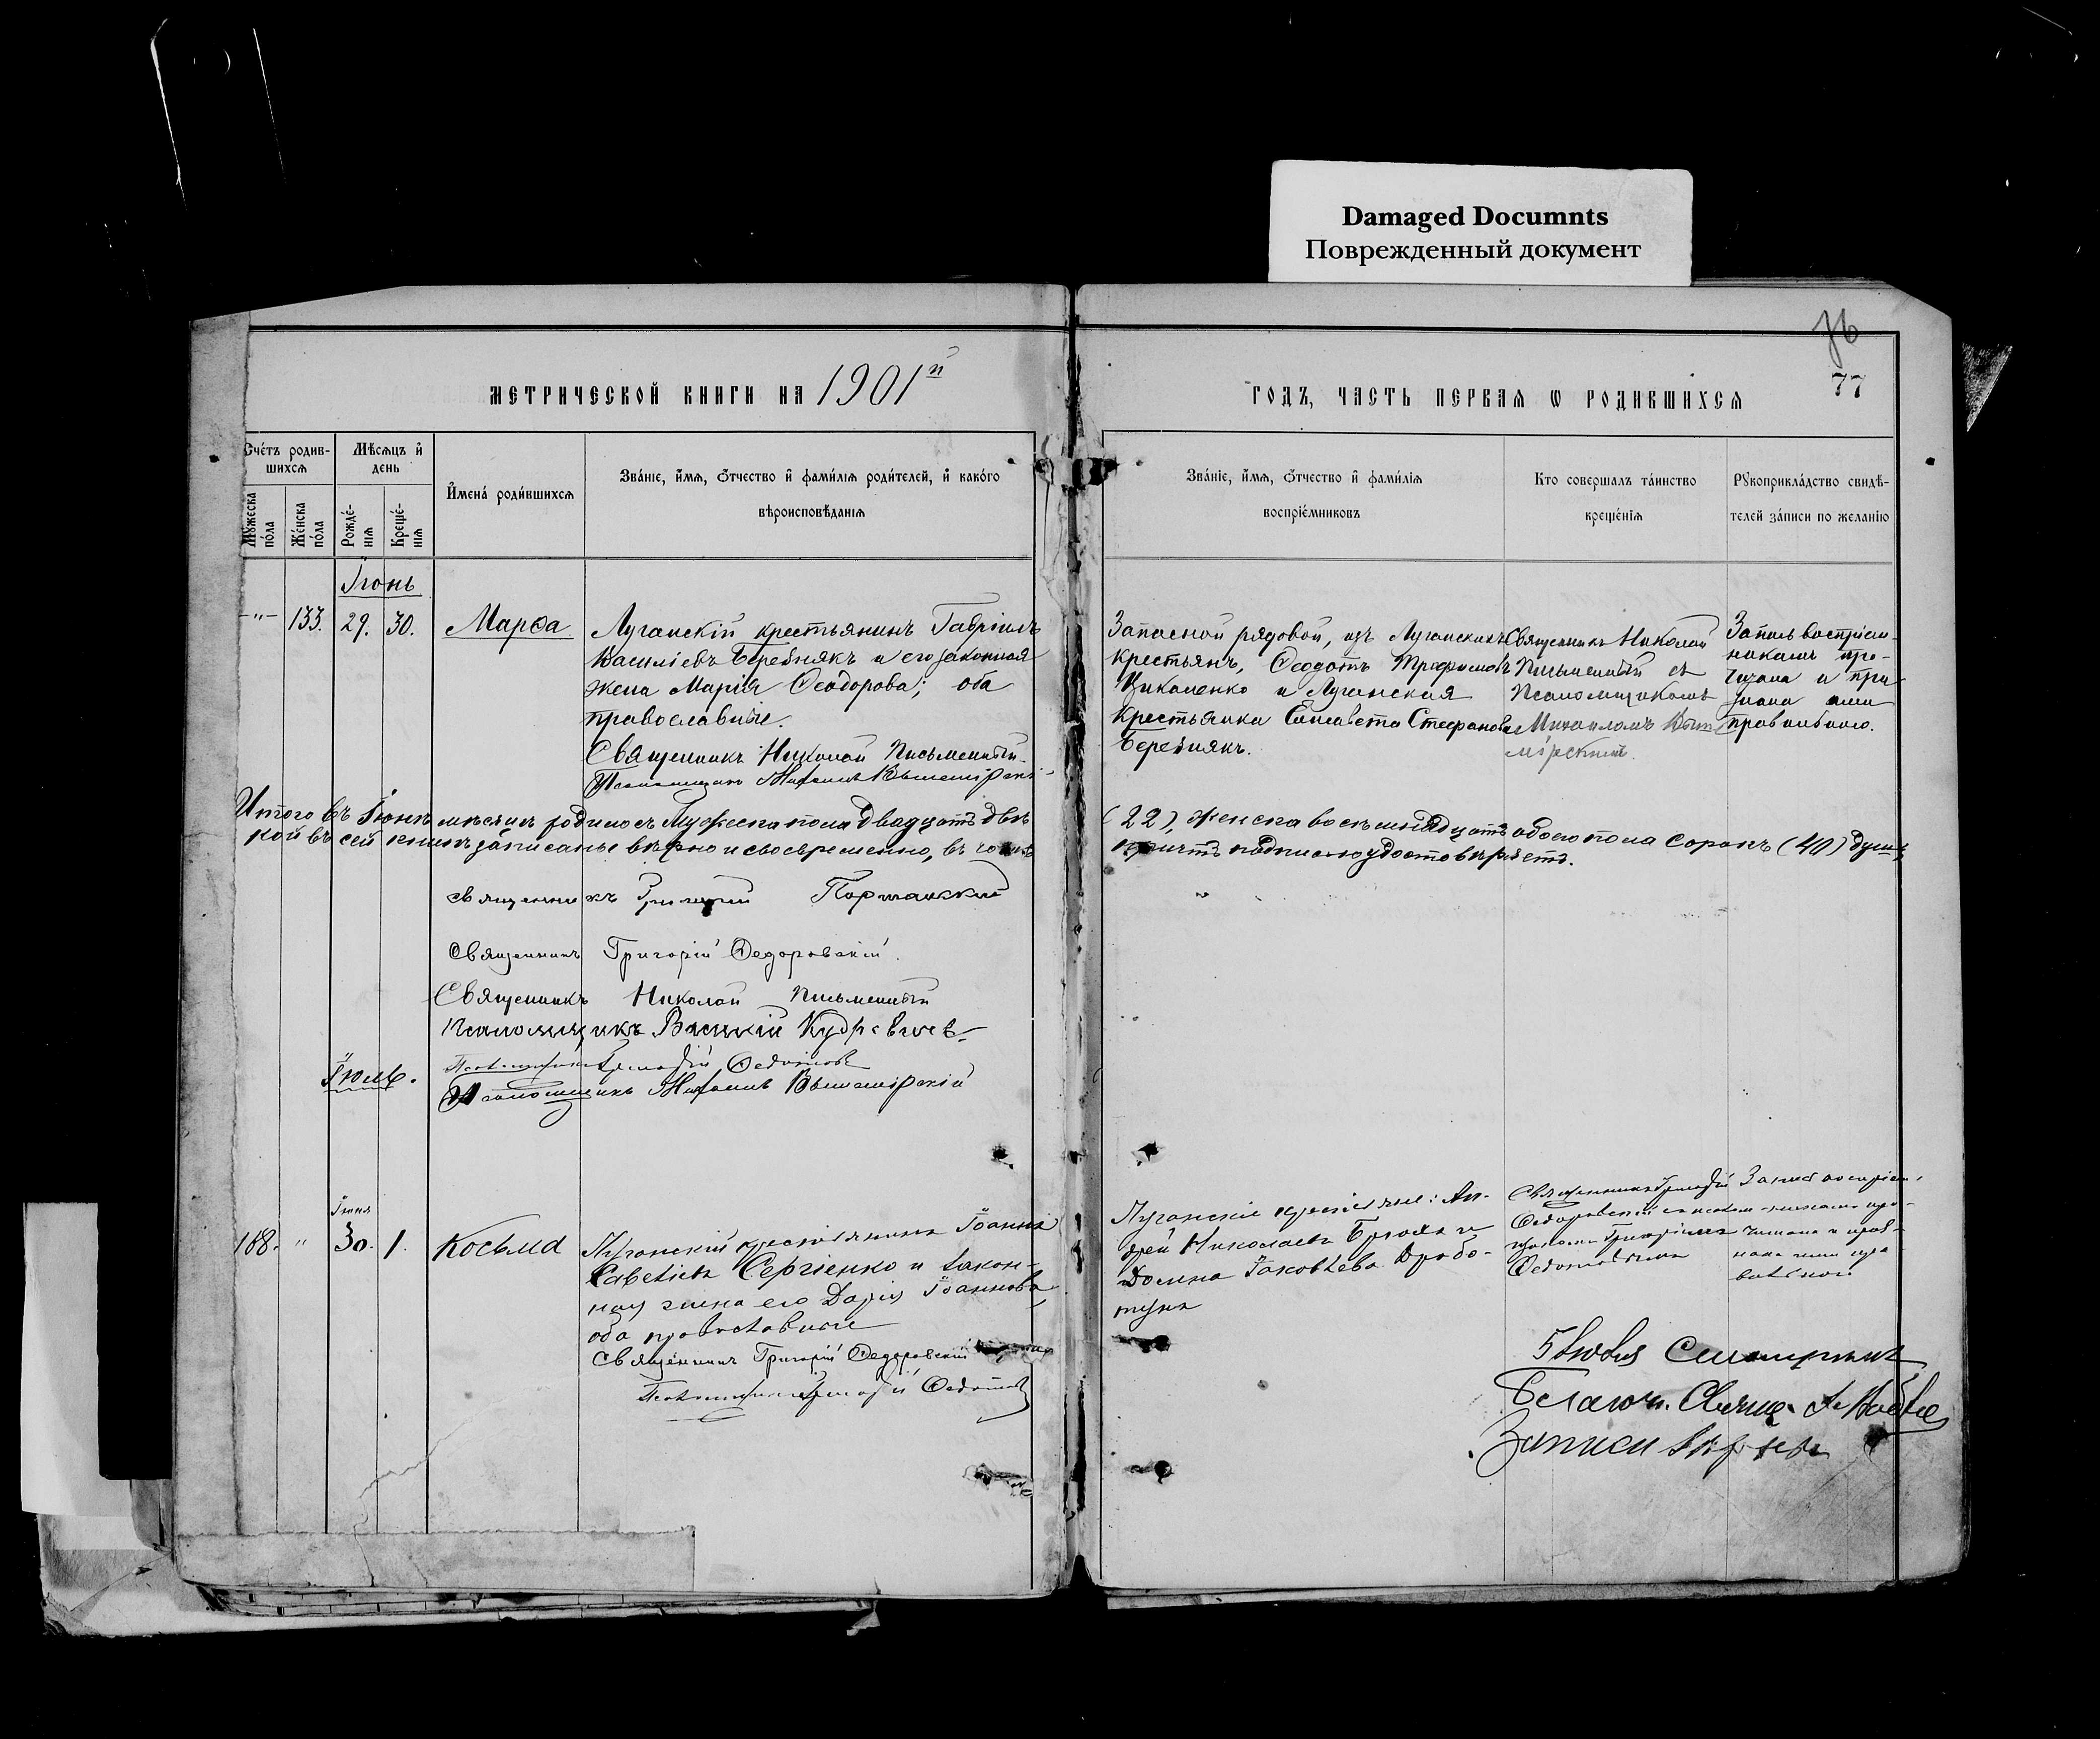 Damaged Documnts
Поврежденный документ
76
77
МЕТРИЧЕСКОЙ КНИГИ НА 1901й
ГОДЪ, ЧАСТЬ ПЕРВАЯ Ѡ РОДИВШИХСЯ
Счéтъ родив-
шихся
Мѣсяцъ и
день
Мужеска
пóла
Жéнска
пóла
Рождé-
нія
Крещé-
нія
Именá роди́вшихся
Звáніе, и́мя, ѻ́тчество и фами́лія роди́телей, и какóго
вѣроисповѣданія
Звáніе, и́мя, ѻ́тчество и фами́лія
воспріéмниковъ
Кто совершалъ тáинство
крещéнія
Рукоприклáдство свидѣ-
телей зáписи по желанію
Іюнь
-"- 133. 29. 30. Марѳа
Луганскій крестьянинъ Гавріилъ
Василіевъ Березнякъ и его законная
жена Марія Ѳеодорова; оба
православные.
Священникъ Николай Письменный
Псаломщикъ Михаилъ Вышемірскі-
Запасной рядовой, изъ Луганскихъ
крестьянъ, Ѳеодотъ Трофимовъ
Цикаленко и Луганская
крестьянка Елисавета Стефанова
Березнякъ.
Священникъ Николай
Письменный съ
Псаломщикомъ
Михаиломъ Выше
мірскимъ.
Запись воспріем-
никамъ про-
читана и при
знана ими
правильною.
Итого въ Іюнѣ мѣсяцѣ родилось Мужеска пола двадцать двѣ
(22), женска восемнадцать обоего пола сорокъ (40) душъ,
кой въ сей книгѣ записаны вѣрно и своевременно, въ чемъ
причтъ подписью удостовѣряетъ.
священникъ Григорій
Священникъ Григорій Ѳедоровскій.
Священникъ Николай Письменный
Псаломщикъ Василій
Псаломщикъ Ѳедотовъ
Іюль.
Псаломщикъ Михаилъ Вышемірскій
Іюня
168. " 30. 1. Косьма
Луганскій крестьянинъ Іоаннъ
Савеліевъ Сергіенко и закон-
ная жена его Дарія Іоаннова
оба православные
Священникъ Григорій Ѳедоровскій
Псаломщикъ Ѳедотовъ
Луганскіе крестьяне: Ан-
дрей Николаевъ Брюха и
Домна Іаковлева Дробо-
тунъ
Священникъ Григорій
Ѳедоровскій съ псалом-
щикомъ
Ѳедотовымъ
Запись воспріем-
никамъ про-
читана и приз-
нана ими пра
вильной
5 Іюля Смотрѣлъ
Благоч. Свящ.
Записи